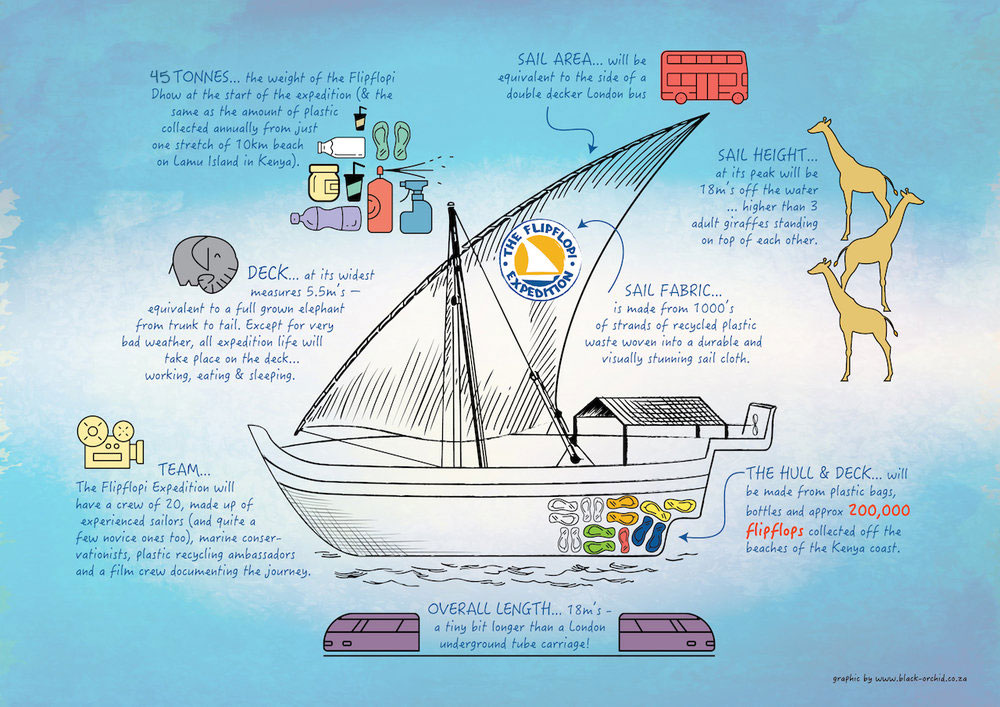 45 TONNES... the weight of the Flipflopi
Dhow at the start of the expedition (& the
same as the amount of plastic
collected annually from just
one stretch of 10km beach
on Lamu Island in Kenya).
SAIL AREA... will be
equivalent to the side of a
double decker London bus
SAIL HEIGHT...
at its peak will be
18m's off the water
... higher than 3
adult giraffes standing
on top of each other.
THE FLIPFLOPI
EXPEDITION
DECK... at its widest
measures 5.5m's –
equivalent to a full grown elephant
from trunk to tail. Except for very
bad weather, all expedition life will
take place on the deck...
working, eating & sleeping.
SAIL FABRIC...
is made from 1000's
of strands of recycled plastic
waste woven into a durable and
visually stunning sail cloth.
TEAM...
The Flipflopi Expedition will
have a crew of 20, made up of
experienced sailors (and quite a
few novice ones too), marine conser-
vationists, plastic recycling ambassadors
and a film crew documenting the journey.
THE HULL & DECK... will
be made from plastic bags,
bottles and approx 200,000
flipflops collected off the
beaches of the Kenya coast.
OVERALL LENGTH... 18m's –
a tiny bit longer than a London
underground tube carriage!
graphic by www.black-orchid.co.za